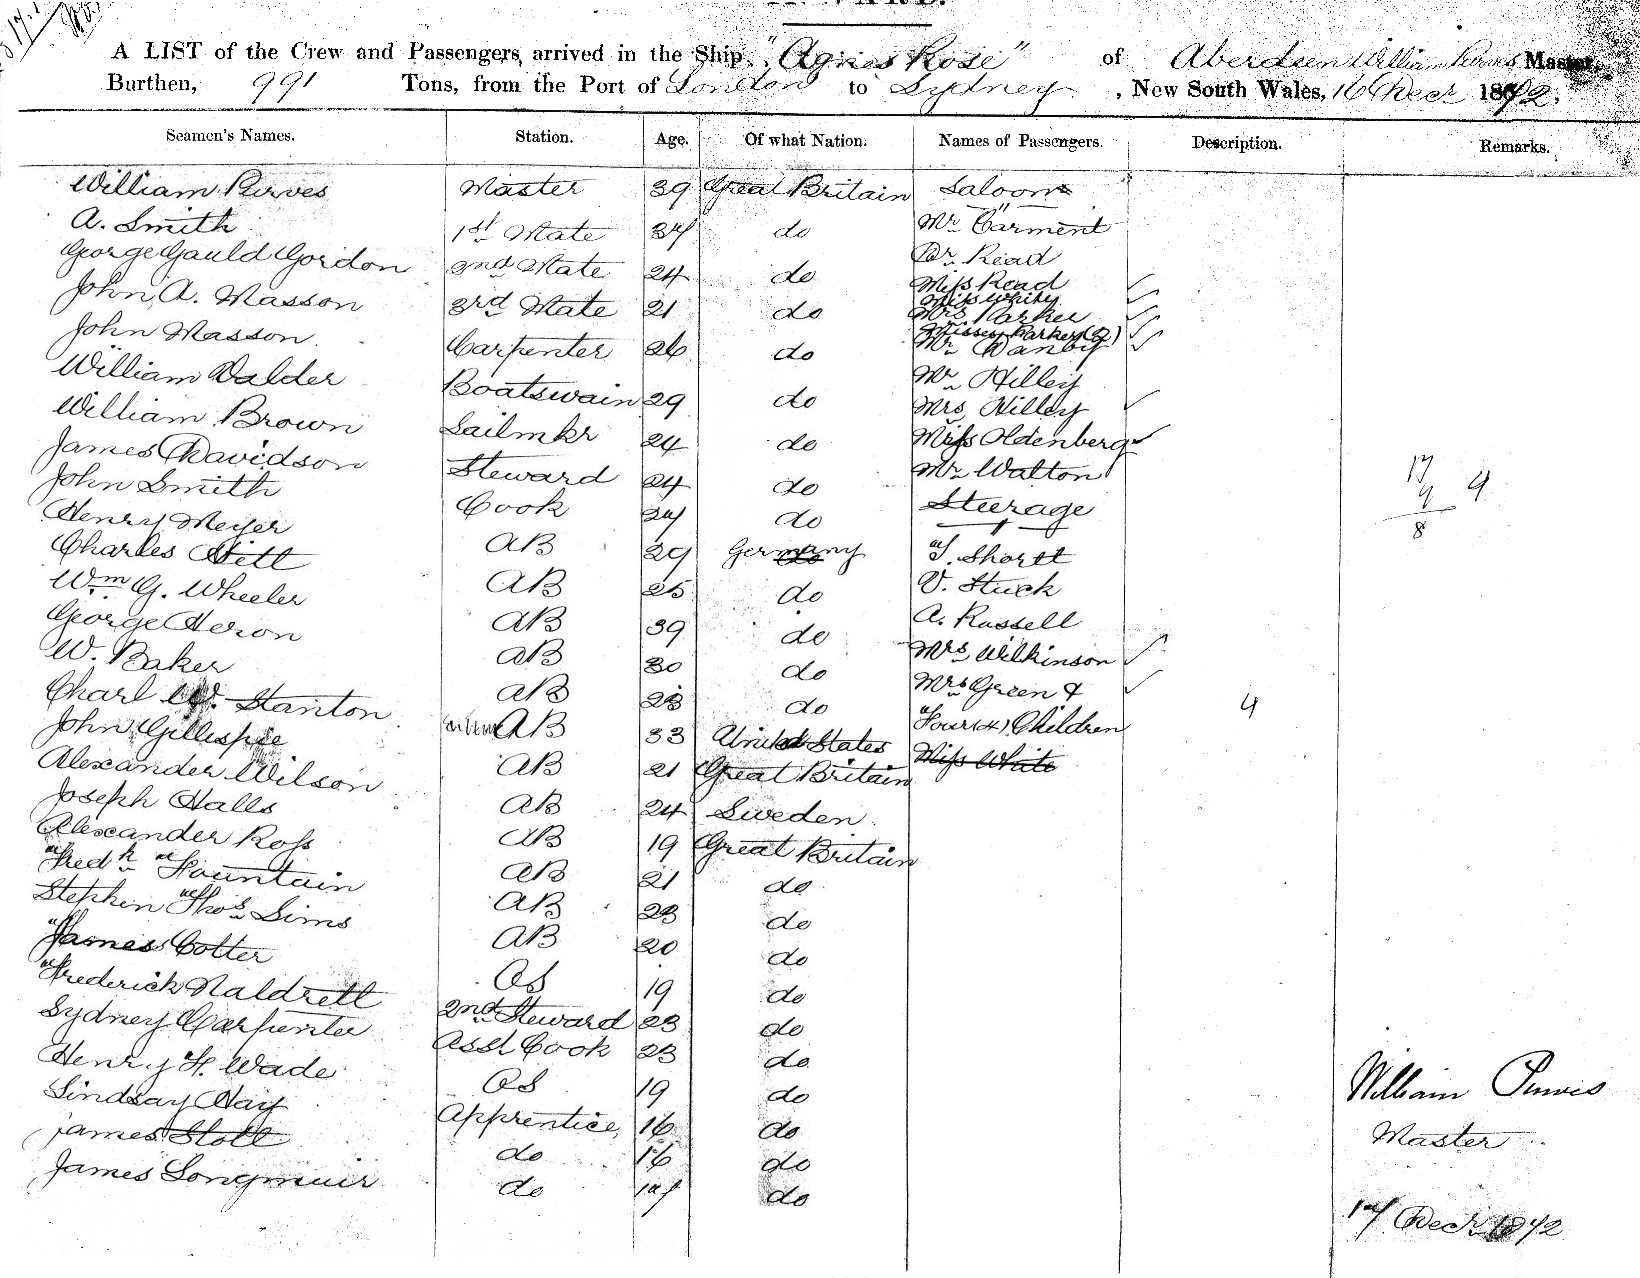 A LIST of the Crew and Passengers, arrived in the Ship "Agnes Rose" of Aberdeen William Purves Master,
Burthen, 991 Tons, from the Port of London to Sydney, New South Wales, 16 Decr 1872.
Seamen's Names. Station. Age. Of what Nation. Names of Passengers. Description. Remarks.
William Purves Master 39 Great Britain Saloon
A. Smith 1st Mate 37 do Mr Carment
George Gauld Gordon 2nd Mate 24 do Dr Read
Miss Read
John A. Masson 3rd Mate 21 do Miss White
Mrs Parker
Misses Parker (2)
John Masson Carpenter 26 do Mr Danby
William Valder Boatswain 29 do Mr Hilley
Mrs Hilley
William Brown Sailmkr 24 do Miss Oldenberg
James Davidson Steward 24 do Mr Walton
John Smith Cook 27 do Steerage
Henry Meyer AB 29 Germany T. Shortt
Charles Stitt AB 25 do V. Stuck
Wm G. Wheeler AB 39 do A. Russell
George Heron AB 30 do Mrs Wilkinson
W. Baker AB 23 do Mrs Green &
Charl W. Stanton AB 33 United States Four (4) Children 4
John Gillespie AB 21 Great Britain Miss White
Alexander Wilson AB 24 Sweden
Joseph Halls AB 19 Great Britain
Alexander Ross AB 21 do
Fredk Fountain AB 23 do
Stephen Thos Sims AB 20 do
James Cotter OS 19 do
Frederick Naldrett 2nd Steward 23 do
Sydney Carpenter Asst Cook 23 do
Henry F. Wade OS 19 do
Lindsay Hay Apprentice 16 do
James Stott do 16 do
James Longmuir do 17 do
17
9 9
8
William Purves
Master
17 Decr 1872